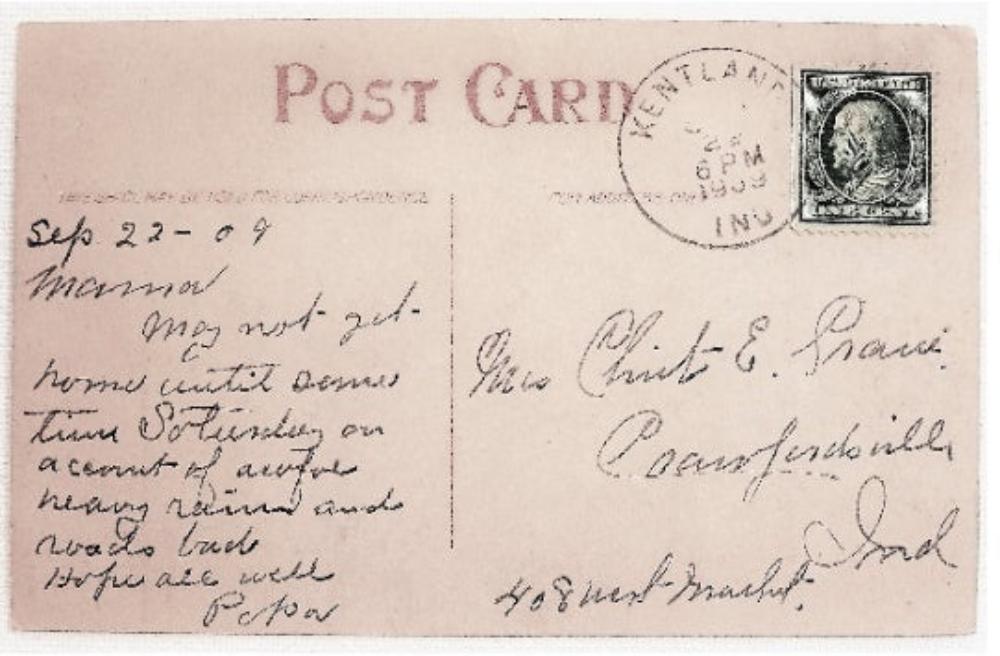 POST CARD
KENTLAND
22
6 PM
1909
IND
THIS SPACE MAY BE USED FOR CORRESPONDENCE
Sep 22 - 09
Mama
May not get
home until some
time Saturday on
account of awful
heavy rains and
roads bad
Hope all well
Papa
Mrs Christ E.
Crawfordsville
Ind
408 West Market